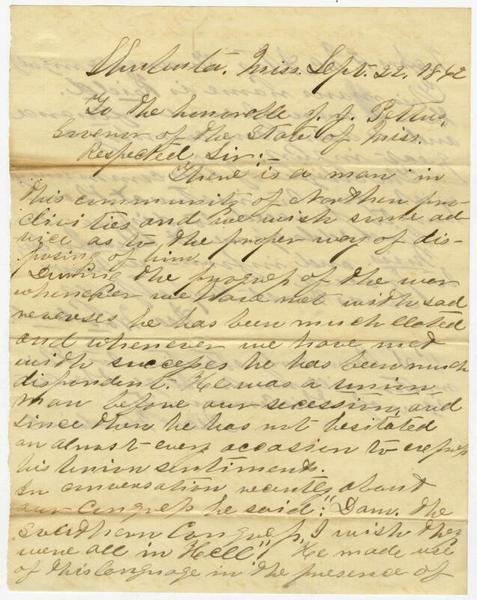 Miss. Sept. 22, 1862
To the honorable J. J. Pettus,
Govenor of the State of Miss.
Respected Sir:-
There is a man in
this community of Northen pro-
clivities and we wish such ad
vice as to the proper way of dis-
posing of him.
During the progress of the war
whenever we have met with sad
reverses he has been much elated
and whenever we have met
with success he has been much
dispondent. He was a union
man before our secession, and
since then he has not hesitated
on almost every occasion to express
his Union sentiments.
In conversation recently about
our Congress he said: "Dam. the
Southern Congress, I wish they
were all in Hell"! He made use
of this language in the presence of